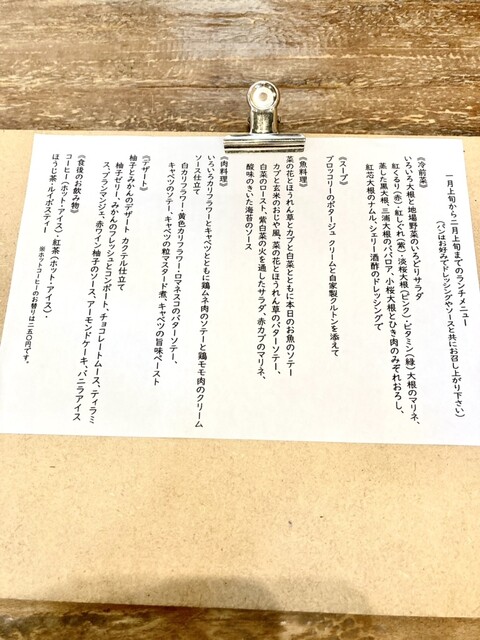 一月上旬から二月上旬までのランチメニュー
（パンはお好みでドレッシングやソースと共にお召し上がり下さい）
《冷前菜》
いろいろ大根と地場野菜のいろどりサラダ
紅くるり（赤）・紅しぐれ（紫）・淡桜大根（ピンク）・ビタミン（緑）大根のマリネ、
蒸した黒大根、三浦大根のババロア、小桜大根とひき肉のみぞれおろし、
紅芯大根のナムル、シェリー酒酢のドレッシングで
《スープ》
ブロッコリーのポタージュ クリームと自家製クルトンを添えて
《魚料理》
菜の花とほうれん草とカブと白菜とともに本日のお魚のソテー
カブと玄米のおじや風、菜の花とほうれん草のバターソテー、
白菜のロースト、紫白菜の火を通したサラダ、赤カブのマリネ、
酸味のきいた海苔のソース
《肉料理》
いろいろカリフラワーとキャベツとともに鶏ムネ肉のソテーと鶏モモ肉のクリーム
ソース仕立て
白カリフラワー・黄色カリフラワー・ロマネスコのバターソテー、
キャベツのソテー、キャベツの粒マスタード煮、キャベツの旨味ペースト
《デザート》
柚子とみかんのデザート カクテル仕立て
柚子ゼリー、みかんのフレッシュとコンポート、チョコレートムース、ティラミ
ス、ブランマンジェ、赤ワイン柚子のソース、アーモンドケーキ、バニラアイス
《食後のお飲み物》
コーヒー（ホット・アイス）・紅茶（ホット・アイス）・
ほうじ茶・ルイボスティー
※ホットコーヒーのお替りは二五〇円です。